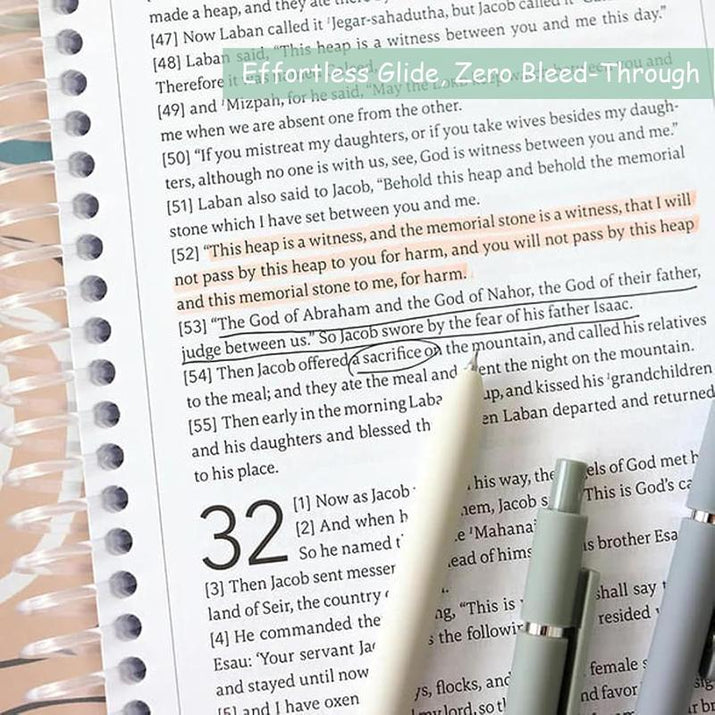 made a heap, and they ate there
[47] Now Laban called it 'Jegar-sahadutha, but Jacob called it
[48] Laban said, "This heap is a witness between you and me this day."
Therefore it
Effortless Glide, Zero Bleed-Through
[49] and 'Mizpah, for he said, "May the
me when we are absent one from the other.
[50] "If you mistreat my daughters, or if you take wives besides my daugh-
ters, although no one is with us, see, God is witness between you and me."
[51] Laban also said to Jacob, "Behold this heap and behold the memorial
stone which I have set between you and me.
[52] "This heap is a witness, and the memorial stone is a witness, that I will
not pass by this heap to you for harm, and you will not pass by this heap
and this memorial stone to me, for harm.
[53] "The God of Abraham and the God of Nahor, the God of their father,
judge between us." So Jacob swore by the fear of his father Isaac.
[54] Then Jacob offered a sacrifice on the mountain, and called his relatives
to the meal; and they ate the meal and ent the night on the mountain.
[55] Then early in the morning Laba up, and kissed his 'grandchildren
and his daughters and blessed th en Laban departed and returned
to his place.
32
[1] Now as Jacob his way, the els of God met h
[2] And when h hem, Jacob s This is God's ca
So he named t e 'Mahana
[3] Then Jacob sent messer ead of hims is brother Esa
land of Seir, the country
[4] He commanded the ng, "This is shall say
Esau: 'Your servant Jac s the followi resided
and stayed until now
[5] and I have oxen ys, flocks, and female s
my lord, so t nd favor sig